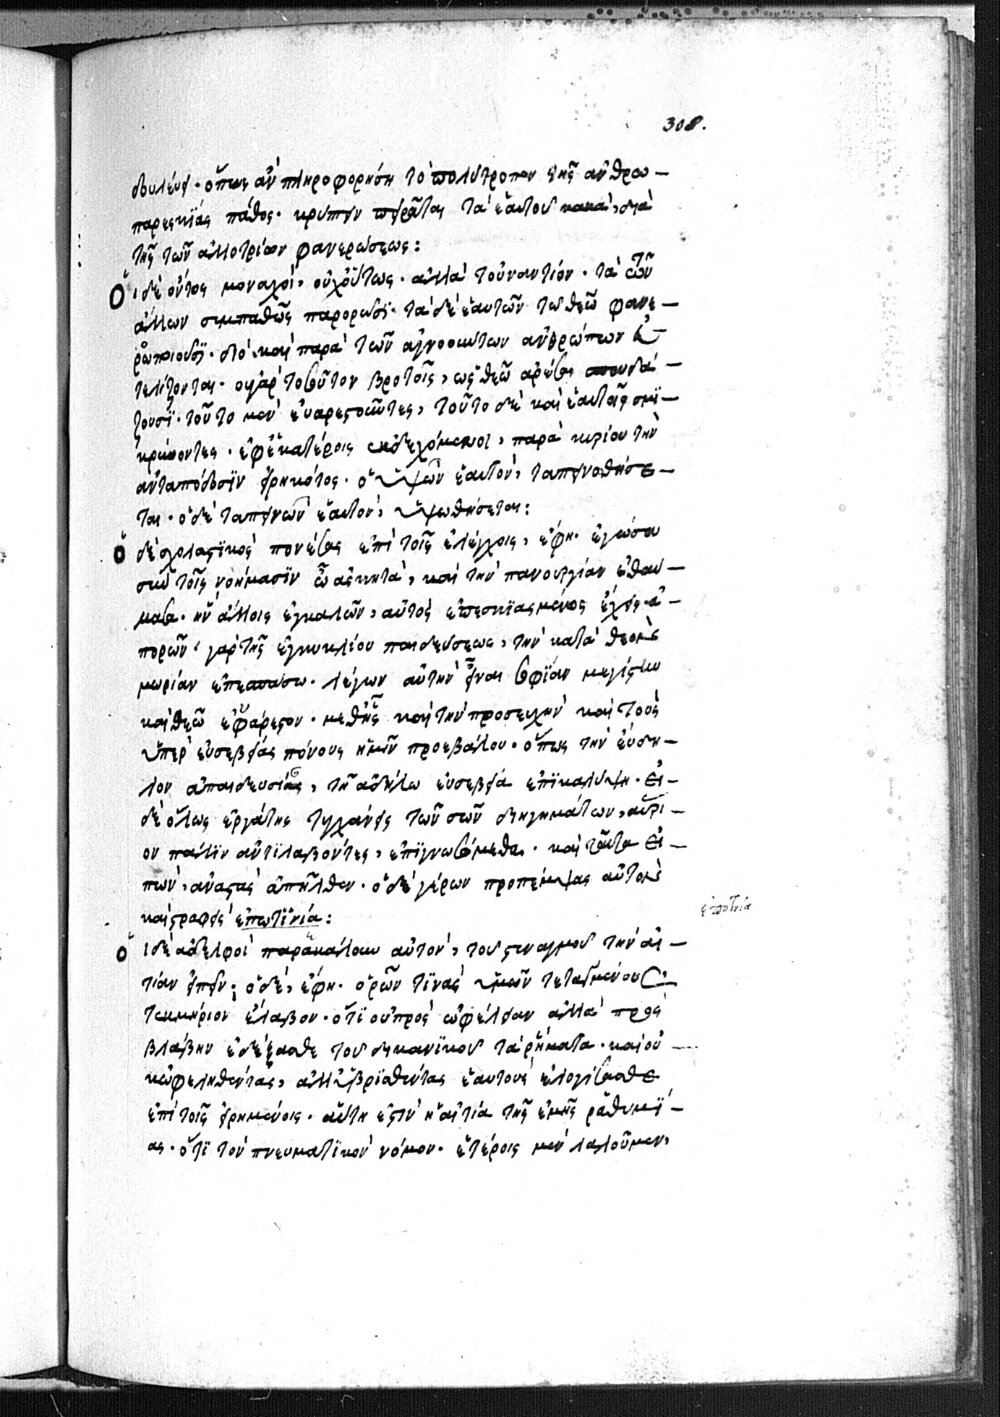 308.
δουλεύει· ὅπως ἂν πληροφορήση τὸ πολύτροπον τῆς ἀνθρω-
παρεσκίας πάθος· κρύπτειν πειρᾶται τὰ ἑαυτοῦ κακὰ, διὰ
τῆς τῶν ἀλλοτρίων φανερώσεως:
Οἱ δὲ ὄντως μοναχοὶ, οὐχ οὕτως· ἀλλὰ τοὐναντίον· τὰ τῶν
ἄλλων συμπαθῶς παρορῶσι· τὰ δὲ ἑαυτῶν τῶ θεῶ φανε-
ροποιοῦσι· διὸ καὶ παρὰ τῶν ἀγνοούντων ἀνθρώπων
οὐ γὰρ τοσοῦτον βροτοῖς, ὡς θεῶ ἀρέσαι σπουδά-
ζουσι· τοῦτο μὲν εὐαρεστοῦντες, τοῦτο δὲ καὶ ἑαυτοὺς σμι-
κρύνοντες· ἐφ' ἑκατέροις ἐκδεχόμενοι, παρὰ κυρίου τὴν
ἀνταπόδοσιν εἰρηκότος· ὁ ὑψῶν ἑαυτὸν, ταπεινωθήσε-
ται· ὁ δὲ ταπεινῶν ἑαυτὸν, ὑψωθήσεται:
Ὁ δὲ σχολαστικὸς πονέσας ἐπὶ τοῖς ἐλέγχοις, ἔφη· ἔγνων σου
σὺν τοῖς νοήμασιν ὦ ἀσκητὰ, καὶ τὴν πανουργίαν ἐθαύ-
μασα· ἣν ἄλλοις ἐγκαλῶν, αὐτὸς ἐπεσκιασμένος ἔχεις· ἀ-
πορῶν γὰρ τῆς ἐγκυκλίου παιδεύσεως, τὴν κατὰ θεὸν
μωρίαν ἐπεσπάσω· λέγων αὐτὴν εἶναι σοφίαν μεγίστην
καὶ θεῶ εὐάρεστον· μεθ' ἧς καὶ τὴν προσευχὴν καὶ τοὺς
ὑπὲρ εὐσεβείας πόνους ἡμῖν προεβάλου· ὅπως τὴν εὔδη-
λον ἀπαιδευσίας, τῆ ἀδήλω εὐσεβεία ἐπικαλύψη· εἰ
δὲ ὅλως ἐργάτης τυγχάνεις τῶν σῶν διηγημάτων, αὔρι-
ον πάλιν ἀντιλαβόντες, ἐπιγνωσόμεθα· καὶ ταῦτα εἰ-
πὼν, ἀναστὰς ἀπῆλθεν· ὁ δὲ γέρων προπέμψας αὐτὸν
καὶ στραφεὶς ἐπωτινία:
ἐπωτινία
Οἱ δὲ ἀδελφοὶ παρακάλουν αὐτὸν, τοῦ στεναγμοῦ τὴν αἰ-
τίαν εἰπεῖν; ὁ δὲ, ἔφη· ὁρῶν τινὰς ὑμῶν τεταγμένους
τεκμήριον ἔλαβον· ὅτι οὐ πρὸς ὠφέλειαν ἀλλὰ πρὸς
βλάβην ἐδέξασθε τοῦ δικανικοῦ τὰ ῥήματα· καὶ οὐ-
κ ὠφεληθέντας, ἀλλ' ὑβρισθέντας ἑαυτοὺς ἐλογίσασθε
ἐπὶ τοῖς εἰρημένοις· αὕτη ἐστὶν ἡ αἰτία τῆς ἐμῆς ῥαθυμί-
ας· ὅτι τὸν πνευματικὸν νόμον· ἑτέροις μὲν λαλοῦμεν,